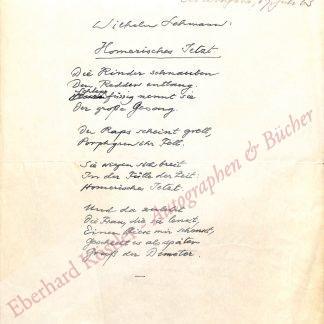 17. Juli 65
Wilhelm Lehmann:
Homerisches Jetzt
Die Rinder schnauben
Den Redder entlang.
füssig nennt sie
Der große Gesang.
Der Raps scheint grell,
Porphyren ihr Fell.
Sie wiegen sich breit
In der Fülle der Zeit:
Homerisches Jetzt.
Und da zuletzt
Die Frau, die sie lenkt,
Einen Blick mir schenkt,
Geschieht es als später
Gruß der Demeter.
Eberhard Köstler Autographen & Bücher